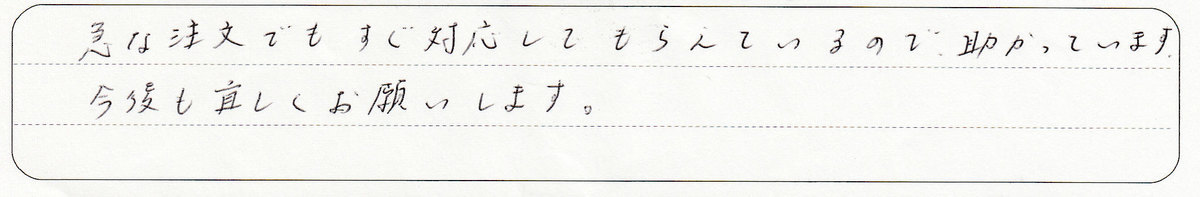 急な注文でもすぐ対応してもらえているので助かっています.
今後も宜しくお願いします。